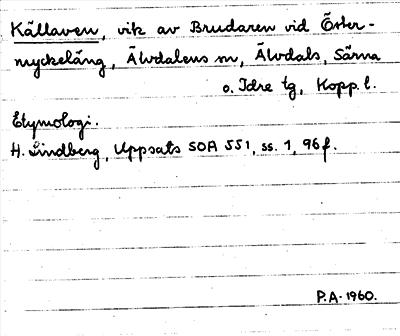 Källaven, vik av Brudaren vid Öster-
myckeläng, Älvdalens sn, Älvdals, Särna
o. Idre tg, Kopp. l.
Etymologi.
H. Lindberg, Uppsats SOA 551, ss. 1, 96f.
P.A. 1960.